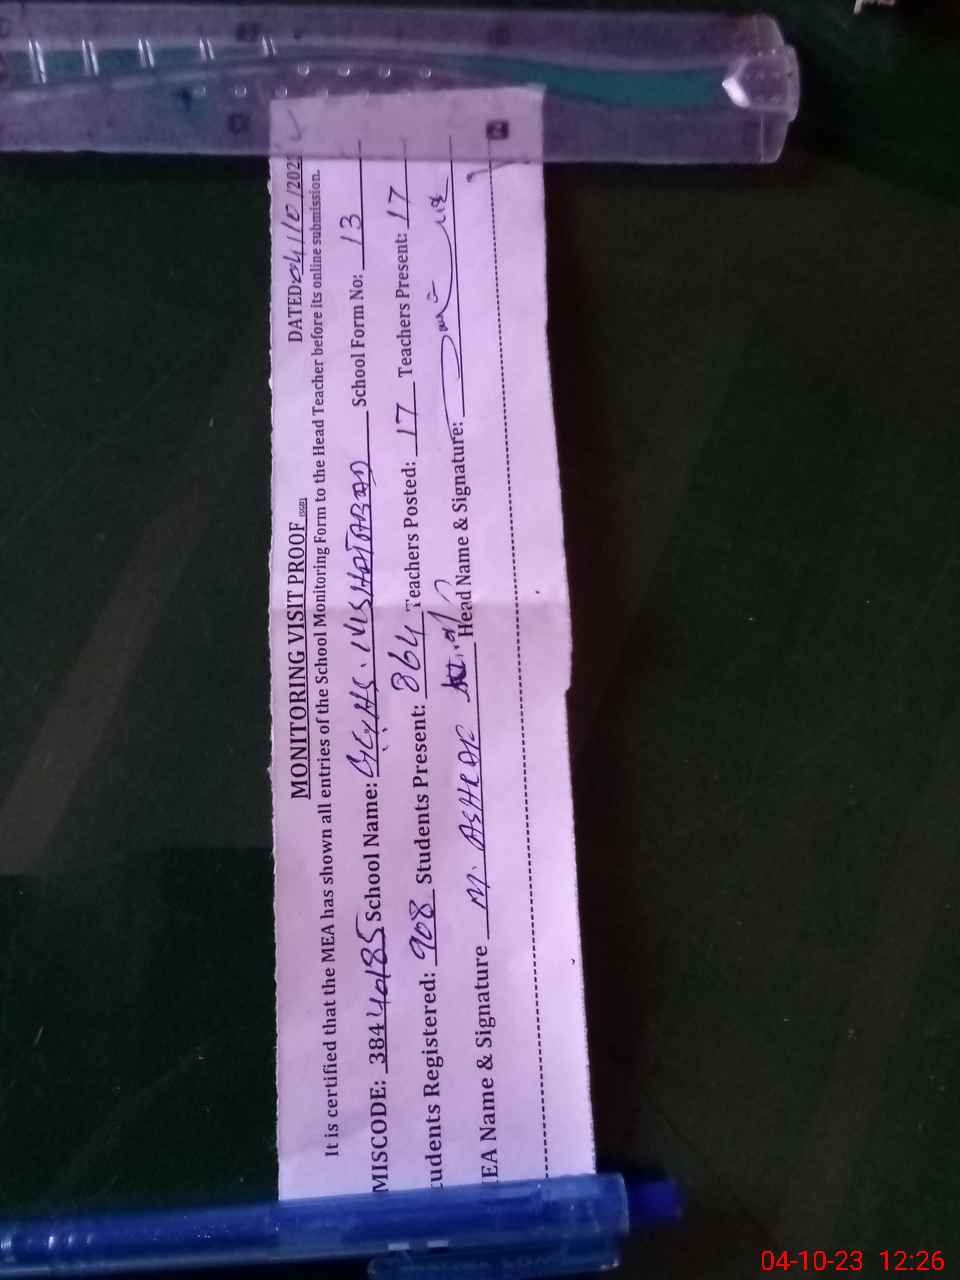 MONITORING VISIT PROOF
DATED 04/10/202
It is certified that the MEA has shown all entries of the School Monitoring Form to the Head Teacher before its online submission.
MISCODE: 38440185 School Name: School Form No: 13
tudents Registered: 908 Students Present: 864 Teachers Posted: 17 Teachers Present: 17
EA Name & Signature M. ASHRAF Head Name & Signature:
04-10-23 12:26